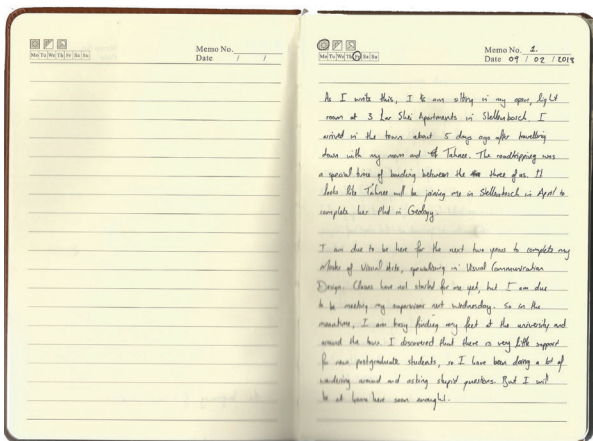 Mo Tu We Th Fr Sa Su
Memo No.
Date / /
Mo Tu We Th Fr Sa Su
Memo No. 1.
Date 09 / 02 / 2018
As I write this, I am sitting in my open, light
room at 3 Lar Shei Apartments in Stellenbosch. I
arrived in the town about 5 days ago after travelling
down with my mom and Tahnee. The roadtripping was
a special time of bonding between the three of us. It
looks like Tahnee will be joining me in Stellenbosch in April to
complete her Phd in Geology.
I am due to be here for the next two years to complete my
Masters of Visual Arts, specialising in Visual Communication
Design. Classes have not started for me yet, but I am due
to be meeting my supervisor next Wednesday. So in the
meantime, I am busy finding my feet at the university and
around the town. I discovered that there is very little support
for new postgraduate students, so I have been doing a lot of
wandering around and asking stupid questions. But I will
be at home here soon enough.